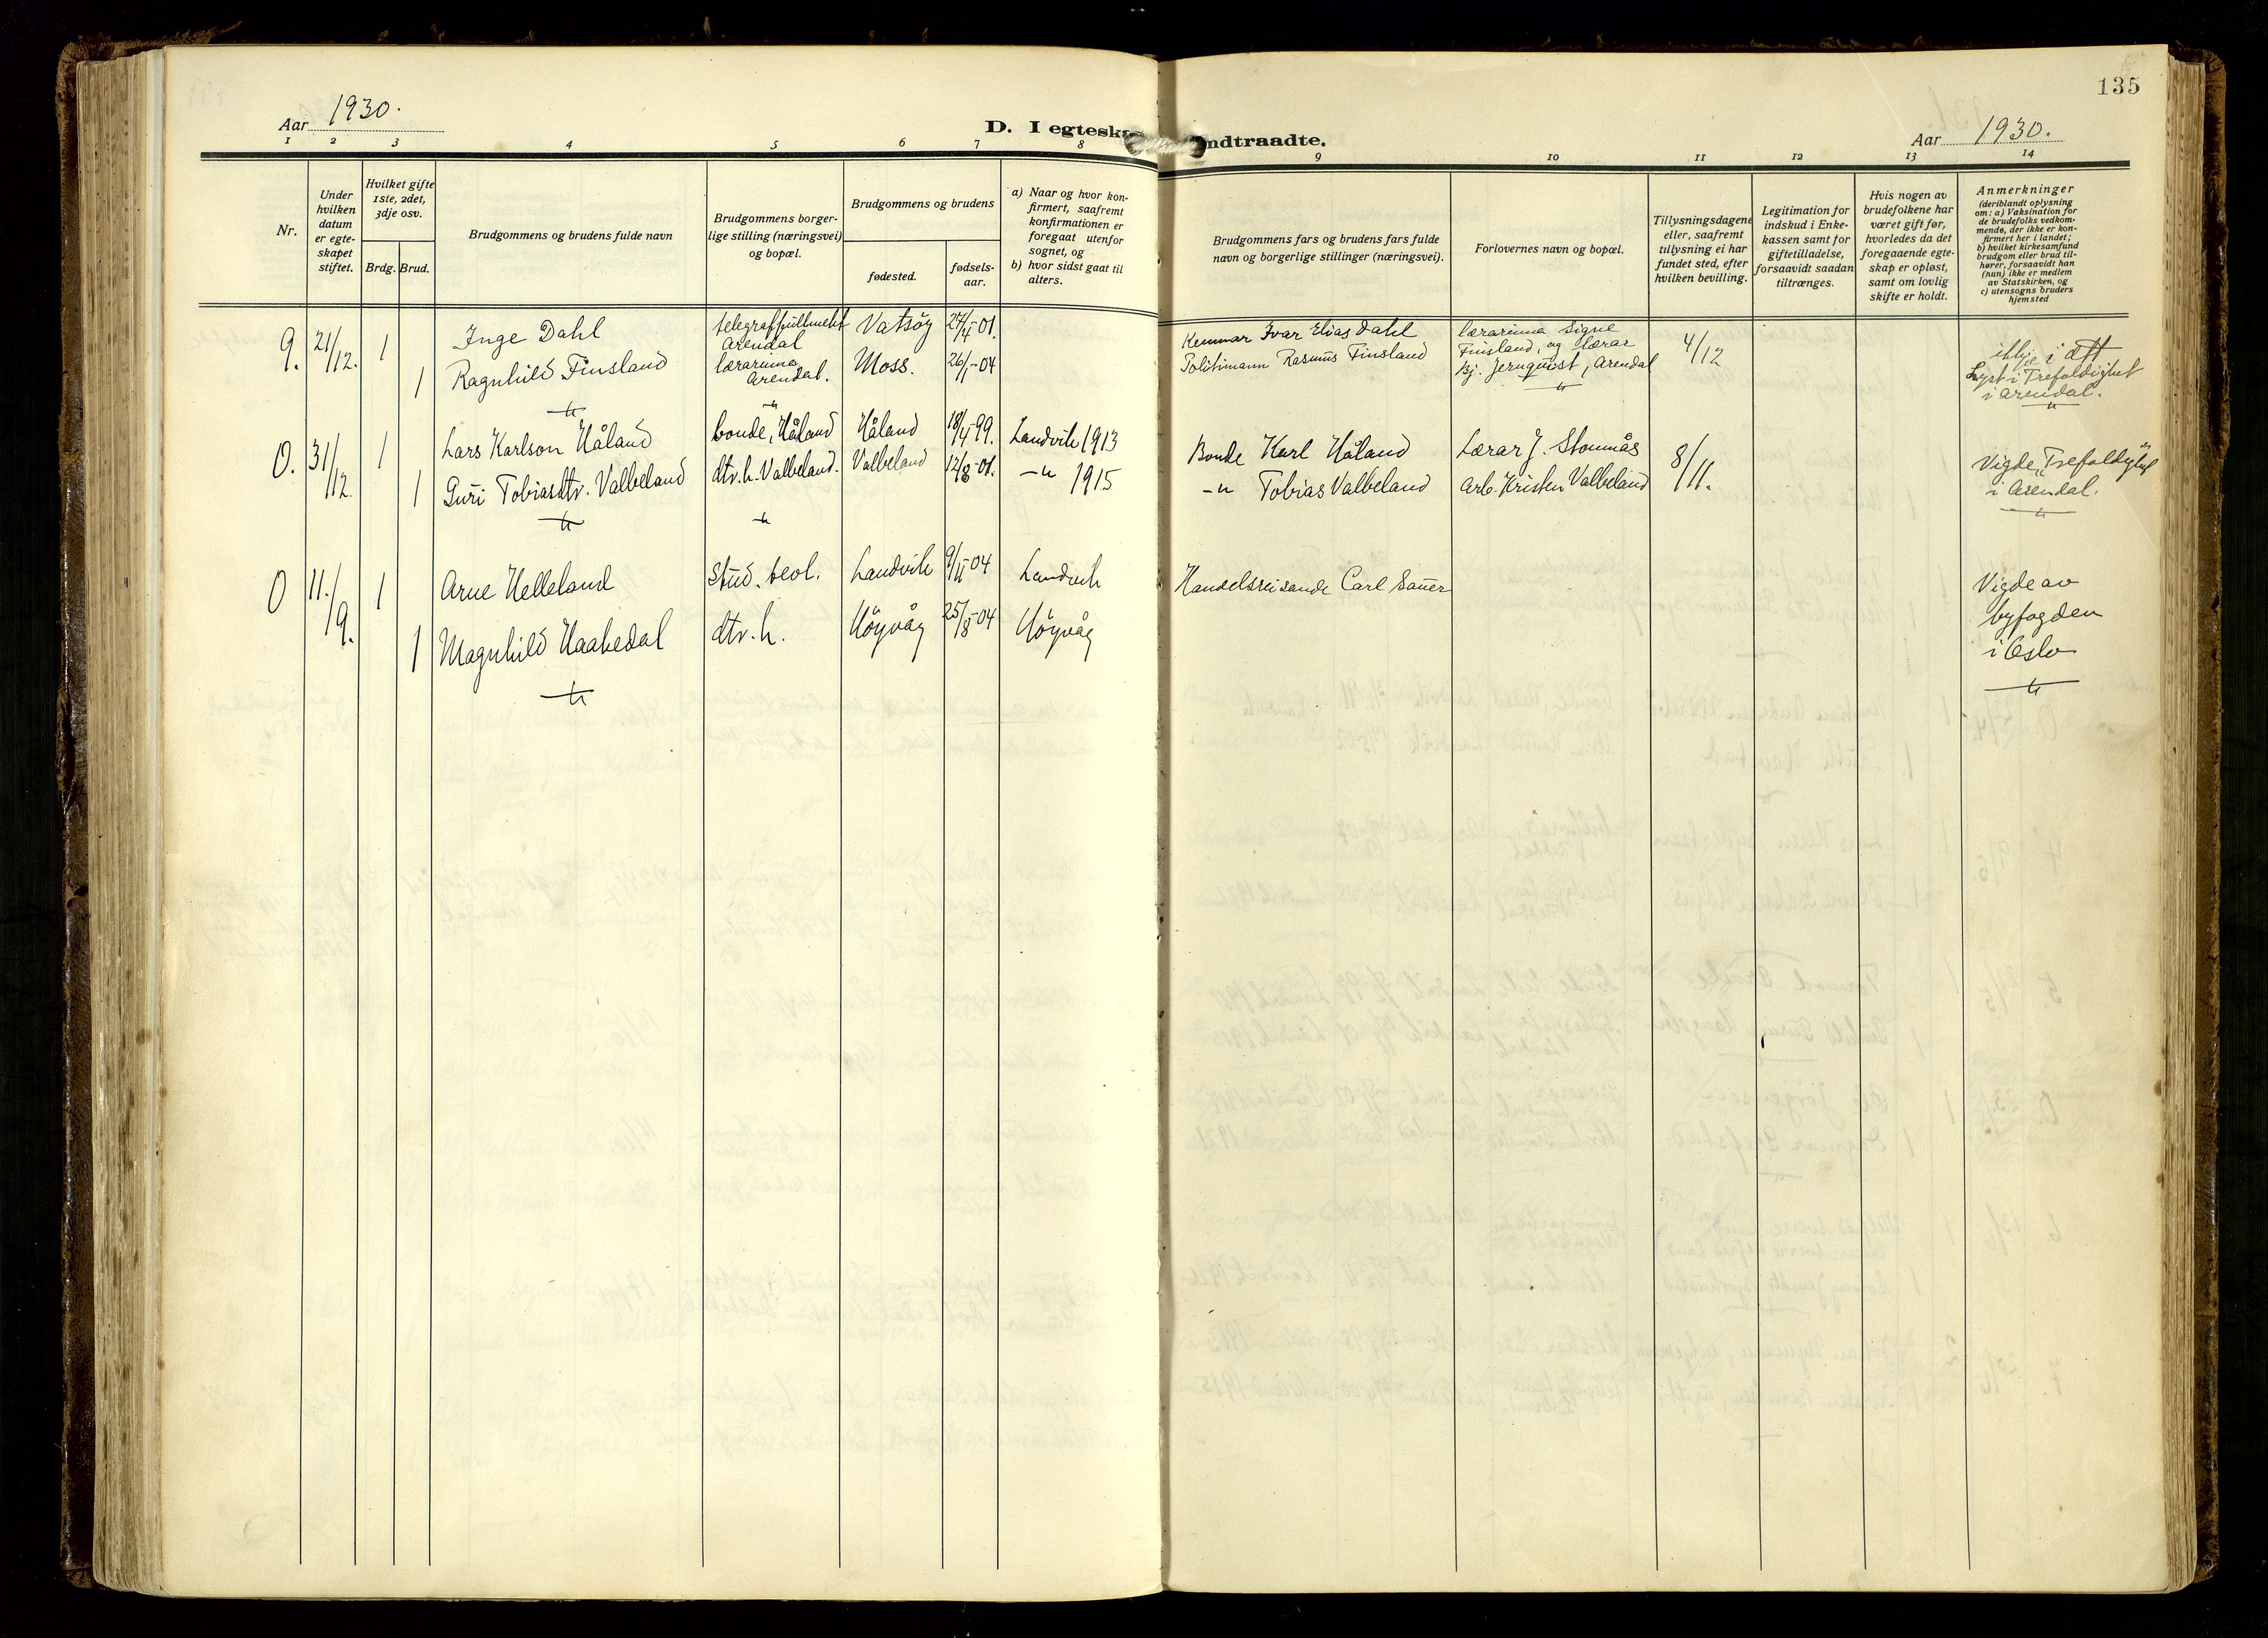 135
Aar 1930.
D. I egteska
ndtraadte.
Aar 1930.
1 2 3 4 5 6 7 8 9 10 11 12 13 14
Nr.
Under
hvilken
datum
er egte-
skapet
stiftet.
Hvilket gifte
1ste, 2det,
3dje osv.
Brdg. Brud.
Brudgommens og brudens fulde navn
Brudgommens borger-
lige stilling (næringsvei)
og bopæl.
Brudgommens og brudens
fødested.
fødsels-
aar.
a) Naar og hvor kon-
firmert, saafremt
konfirmationen er
foregaat utenfor
sognet, og
b) hvor sidst gaat til
alters.
Brudgommens fars og brudens fars fulde
navn og borgerlige stillinger (næringsvei).
Forlovernes navn og bopæl.
Tillysningsdagene
eller, saafremt
tillysning ei har
fundet sted, efter
hvilken bevilling.
Legitimation for
indskud i Enke-
kassen samt for
giftetilladelse,
forsaavidt saadan
tiltrænges.
Hvis nogen av
brudefolkene har
været gift før,
hvorledes da det
foregaaende egte-
skap er opløst,
samt om lovlig
skifte er holdt.
Anmerkninger
(deriblandt oplysning
om: a) Vaksination for
de brudefolks vedkom-
mende, der ikke er kon-
firmert her i landet;
b) hvilket kirkesamfund
brudgom eller brud til-
hører, forsaavidt han
(hun) ikke er medlem
av Statskirken, og
c) utensogns bruders
hjemsted
9. 21/12. 1 Inge Dahl
Arendal
Vatsøy 27/4-01.
Ivar Elias Dahl
lærarinna Signe
Finsland, og lærar
Bj. Jernquist, Arendal
4/12
1 Ragnhild Finsland
lærarinna
Arendal.
Moss. 26/1-04
Politimann Rasmus Finsland
Lyst i Trefoldighet
i Arendal.
0. 31/12. 1 Lars Karlson Håland
bonde, Håland
Håland 18/4-99.
Landvik 1913
Bonde Karl Håland
Lærar J. Stomnås
8/11.
1 Guri Tobiasdtr. Valbeland
dtr. h. Valbeland.
Valbeland 12/8-01.
-"- 1915
-"- Tobias Valbeland
Arb. Kristen Valbeland
Vigde, Trefoldighet
i Arendal.
0 11./9. 1 Arne Helleland
Stud. teol.
Landvik 9/11-04
Landvik
Handelsreisande Carl Sauer
1 Magnhild Haakedal
dtr. h.
Høyvåg 25/8-04
Høyvåg
Vigde av
byfogden
i Oslo